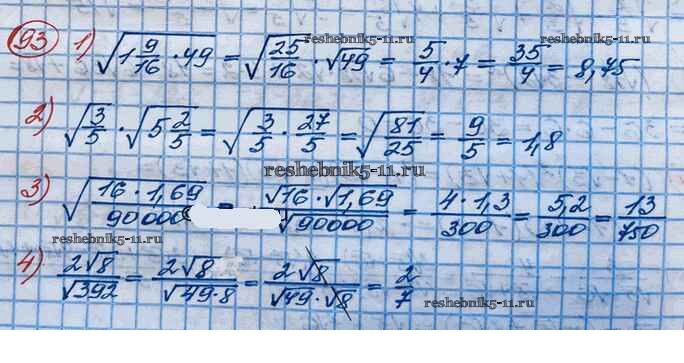 93 1) √(1 9/16 · 49) = √(25/16) · √49 = 5/4 · 7 = 35/4 = 8,75
reshebnik5-11.ru reshebnik5-11.ru
2) √(3/5) · √(5 2/5) = √(3/5 · 27/5) = √(81/25) = 9/5 = 1,8
reshebnik5-11.ru
3) √((16 · 1,69)/90000) = (√16 · √1,69)/√90000 = (4 · 1,3)/300 = 5,2/300 = 13/750
reshebnik5-11.ru
4) 2√8/√392 = 2√8/√(49·8) = 2√8/(√49 · √8) = 2/7
reshebnik5-11.ru